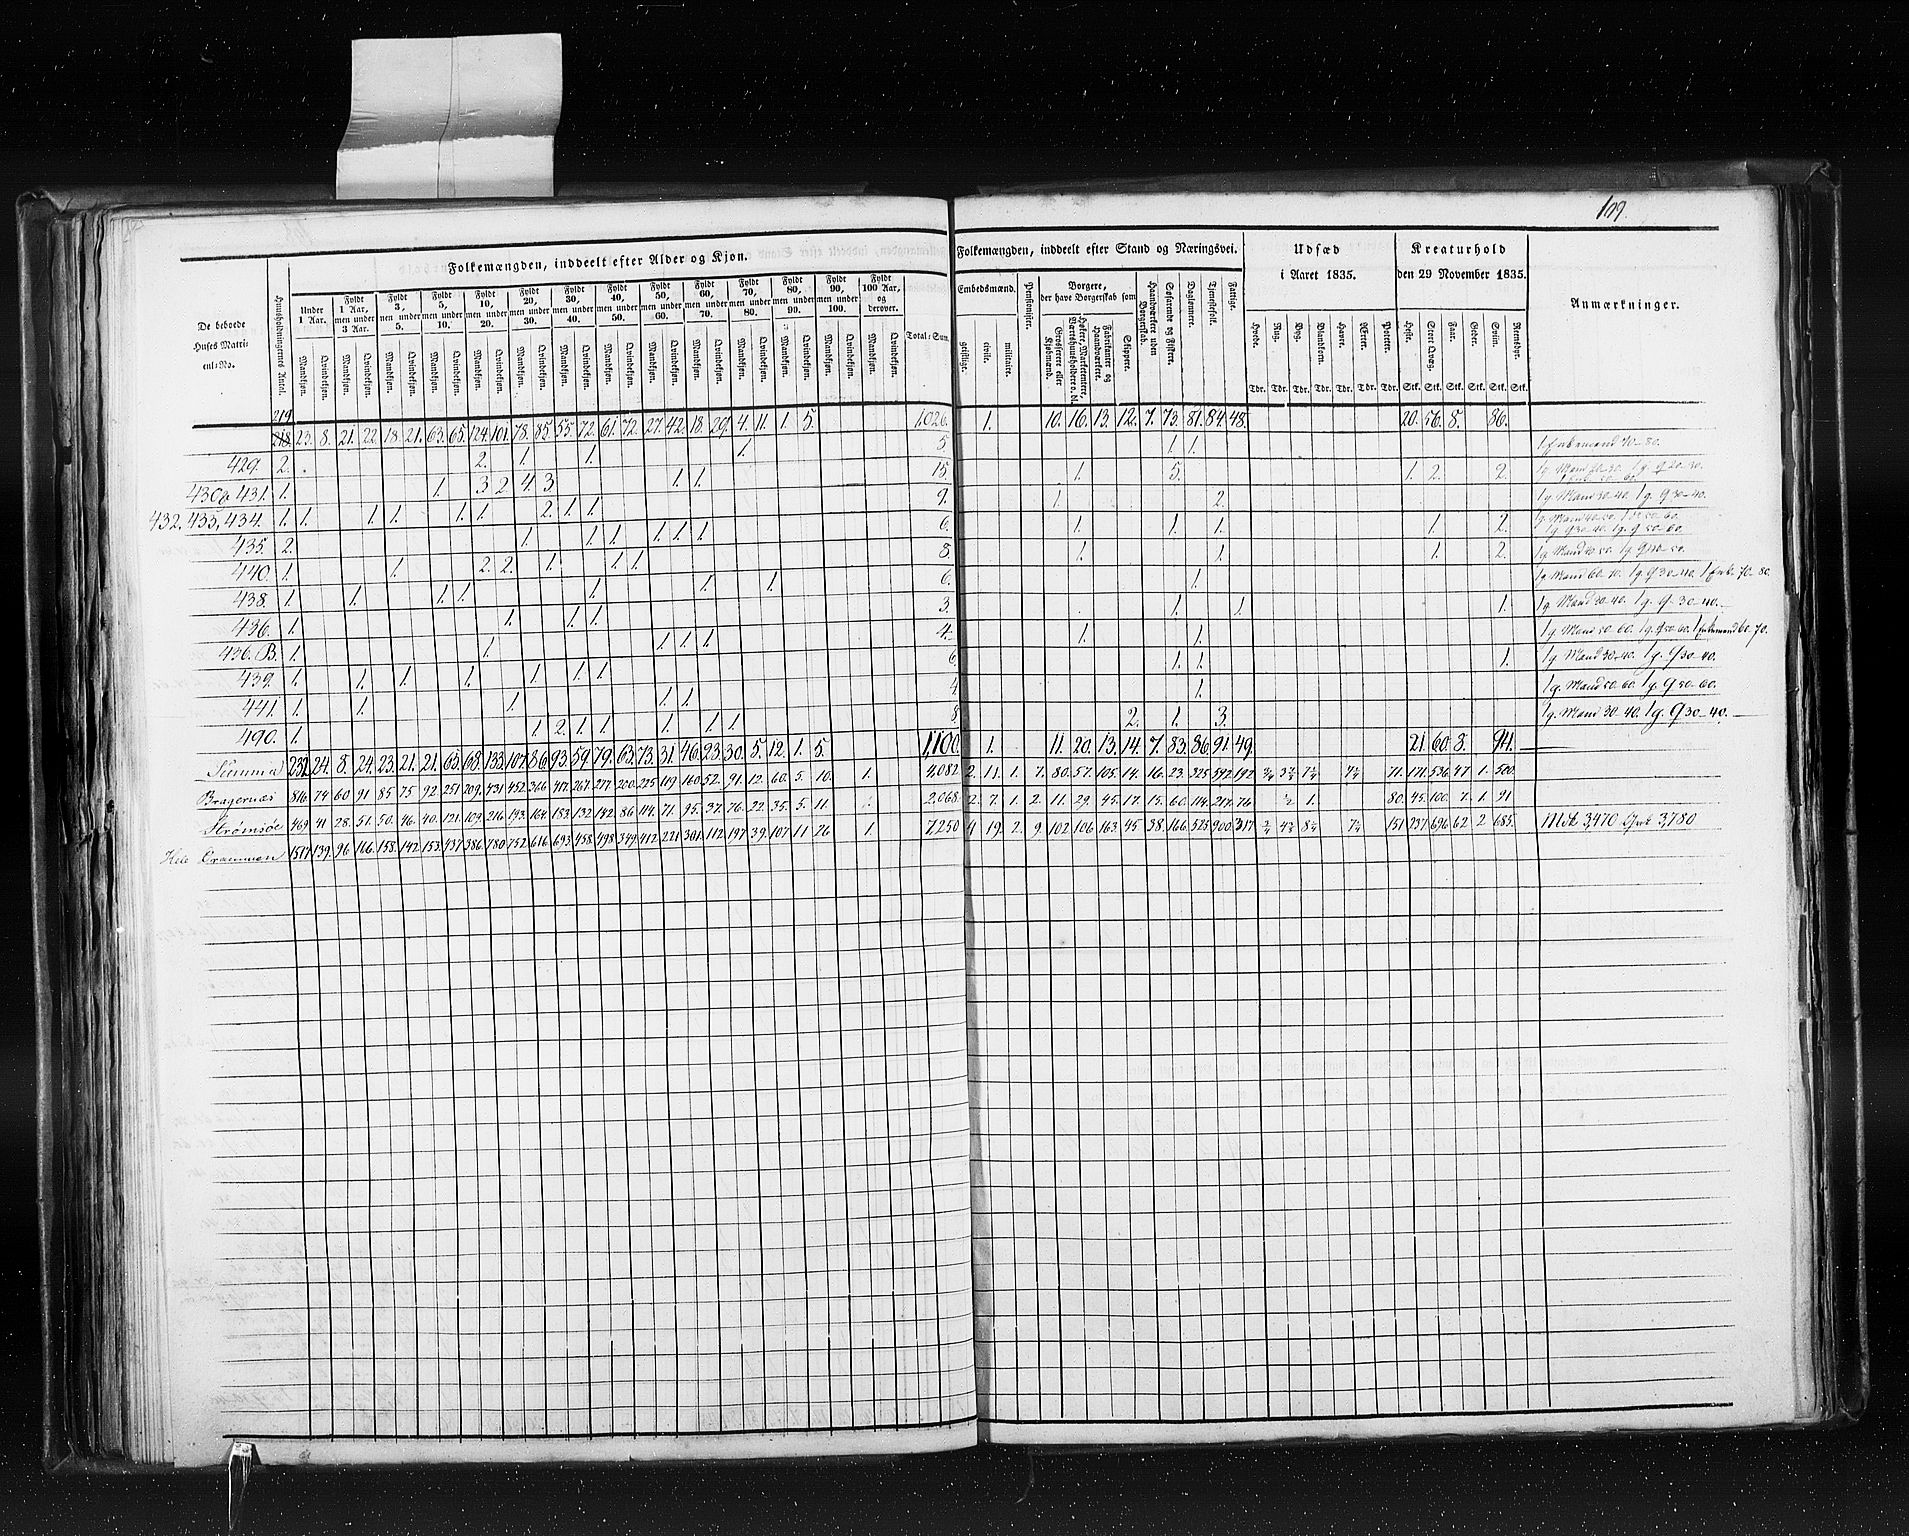 109.
Folkemængden, inddeelt efter Alder og Kjøn.
De beboede Huses Matricul-No.
Huusholdningernes Antal.
Under 1 Aar.
Fyldt 1 Aar, men under 3 Aar.
Fyldt 3, men under 5.
Fyldt 5, men under 10.
Fyldt 10, men under 20.
Fyldt 20, men under 30.
Fyldt 30, men under 40.
Fyldt 40, men under 50.
Fyldt 50, men under 60.
Fyldt 60, men under 70.
Fyldt 70, men under 80.
Fyldt 80, men under 90.
Fyldt 90, men under 100.
Fyldt 100 Aar, og derover.
Mandkjøn. Qvindekjøn.
Total-Sum.
Folkemængden, inddeelt efter Stand og Næringsvei.
Embedsmænd.
geistlige. civile. militaire.
Pensionister.
Borgere, der have Borgerskab som
Grosserere eller Kjøbmænd.
Høkere, Marketentere, Værtshuusholdere o. dl.
Fabrikanter og Haandværkere.
Skippere.
Haandværkere uden Borgerskab.
Søfarende og Fiskere.
Daglønnere.
Tjenestefolk.
Fattige.
Udsæd i Aaret 1835.
Hvede. Rug. Byg. Blandkorn. Havre. Ærter. Poteter.
Tdr. Tdr. Tdr. Tdr. Tdr. Tdr. Tdr.
Kreaturhold den 29 November 1835.
Heste. Stort Qvæg. Faar. Geder. Sviin. Rensdyr.
Stk. Stk. Stk. Stk. Stk. Stk.
Anmærkninger.
219
218. 23. 8. 21. 22. 18. 21. 63. 65. 124. 101. 78. 85. 55. 72. 61. 72. 27. 42. 18. 29. 4. 11. 1. 5. 1,026. 1. 10. 16. 13. 12. 7. 73. 81. 84. 48. 20. 56. 8. 86.
429. 2. 2. 1. 1. 1. 5. 1. 1. 1 Enkemand 70-80.
430 & 431. 1. 1. 3 2 4. 3 1. 1. 15. 1. 5. 1. 2. 2.
432. 433, 434. 1. 1. 1. 1. 1. 1. 2. 1. 1. 9. 1. 2. 1 g. Mand 30-40. 1 g. Q 30-40.
435. 2. 1. 1. 1. 1. 1. 1. 6. 1. 1. 1. 1. 2. 1 g. Mand 40-50. 1 g. Q 30-40. 1 g. Q 50-60.
440. 1. 1. 2. 2. 1. 1. 1. 8. 1. 1. 1. 2. 1 g. Mand 40-50. 1 g. Q 40-50.
438. 1. 1. 1. 1. 1. 1. 1. 6. 1. 1 g. Mand 60-70. 1 g. Q 30-40. 1 Enk. 70-80.
436. 1. 1. 1. 1. 3. 1. 1. 1. 1 g. Mand 30-40. 1 g. Q 30-40.
436. B. 1. 1. 1. 1. 1. 4. 1. 1. 1 g. Mand 50-60. 1 g. Q 50-60. 1 Enkemand 60-70.
439. 1. 1. 1. 1. 1. 1. 1. 6. 1. 1. 1. 1 g. Mand 30-40. 1 g. Q 30-40.
441. 1. 1. 1. 1. 1. 4 1. 1 g. Mand 50-60. 1 g. Q 50-60.
490. 1. 1. 2. 1. 1. 1. 1. 1. 8 2. 1. 3. 1 g. Mand 30-40. 1 g. Q 30-40.
Summa 232 24. 8. 24. 23. 21. 21. 65. 68. 133. 107. 86. 93. 59. 79. 63. 73. 31. 46. 23. 30. 5. 12. 1. 5. 1,100. 1. 11. 20. 13. 14. 7. 83. 86. 91. 49. 21. 60. 8. 94.
Bragernæs 816. 74 60. 91 85 75 92 251 209. 431 452. 366 417. 267. 277 200. 225 119 160. 52. 91. 12. 60. 5. 10. 1. 4,082 2. 11. 1. 7. 80. 57. 105. 14. 16. 23. 325 592. 192 71. 171. 536. 47 1. 500.
Strømsøe 469. 41 28. 51. 50. 46. 40. 121. 109. 216 193. 164. 183. 132 142. 86 114. 71. 95. 37. 76. 22. 35. 5. 11. 2,068. 2. 7. 1. 2. 11. 29. 45. 17. 15. 60. 114. 217. 76 ½ 1. 80. 45. 100. 7. 1. 91
Hele Drammen 1517. 139. 96 166. 158. 142 153 437 386 780 752. 616. 693. 458 498 349 412 221 301. 112 197 39. 107 11 26 1. 7,250 4 19. 2. 9. 102 106 163 45. 38. 166. 525 900. 317 151 237. 696 62 2 685. Mdk 3,470 Qvk 3,780